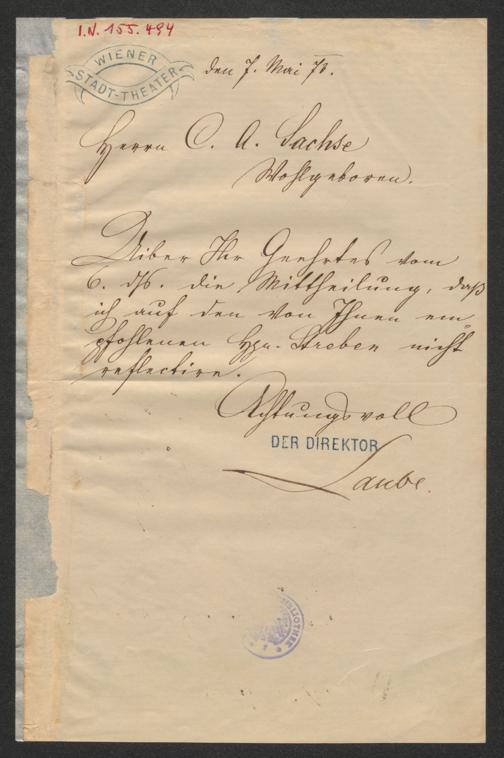 I.N. 155.494
WIENER
STADT-THEATER
den 7. Mai 78.
Herrn C. A. Sachse
Wohlgeboren.
Uiber Ihr Geehrtes vom
6. ds. die Mittheilung, daß
ich auf den von Ihnen em
pfohlenen Hrn. Streben nicht
reflectire.
Achtungsvoll
DER DIREKTOR
Laube.
BIBLIOTHEK